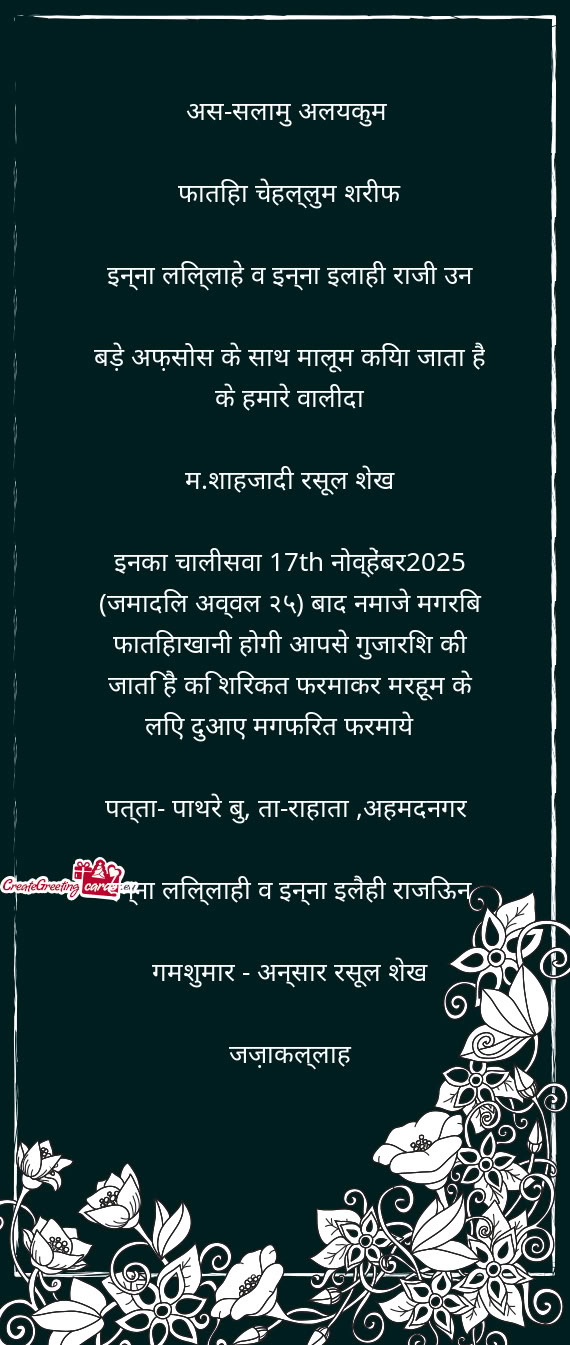 अस-सलामु अलयकुम
फातिहा चेहल्लुम शरीफ
इन्ना लिल्लाहे व इन्ना इलाही राजी उन
बड़े अफ़सोस के साथ मालूम किया जाता है
के हमारे वालीदा
म.शाहजादी रसूल शेख
इनका चालीसवा 17th नोव्हेंबर2025
(जमादिल अव्वल २५) बाद नमाजे मगरिब
फातिहाखानी होगी आपसे गुजारिश की
जाति है कि शिरकत फरमाकर मरहूम के
लिए दुआए मगफिरत फरमाये
पत्ता- पाथरे बु, ता-राहाता ,अहमदनगर
CreateGreetingcards.eu
इन्ना लिल्लाही व इन्ना इलैही राजिऊन
गमशुमार - अन्सार रसूल शेख
जज़ाकल्लाह